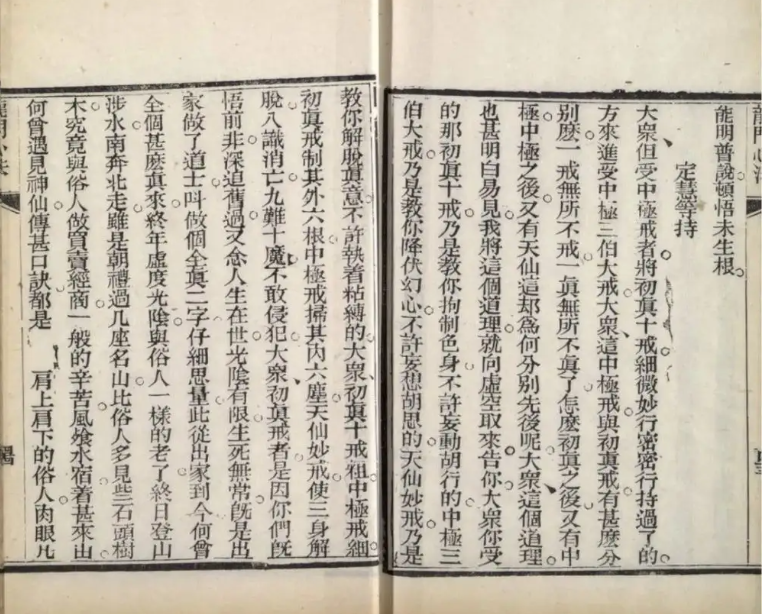 龍門心法
能明普說頓悟未生根
定慧等持
大衆但受中極戒者將初眞十戒細微妙行密密行持過了的
方來進受中極三伯大戒大衆這中極戒與初眞戒有甚麽分
別麽一戒無所不戒一眞無所不眞了怎麽初眞之後又有中
極中極之後又有天仙這却爲何分別先後呢大衆這個道理
也甚明白易見我將這個道理就向虛空取來告你大衆你受
的那初眞十戒乃是教你拘制色身不許妄動胡行的中極三
伯大戒乃是教你降伏幻心不許妄想胡思的天仙妙戒乃是
教你解脫眞意不許執着枯縛的大衆初眞十戒粗中極戒細
初眞戒制其外六根中極戒掃其內六塵天仙妙戒使三身解
脫八識消亡九難十魔不敢侵犯大衆初眞戒者是因你們旣
悟前非深追舊過又念人生在世光陰有限生死無常旣是出
家做了道士叫做個全眞二字仔細思量此從出家到今何曾
全個甚麽眞來終年虛度光陰與俗人一樣的老了終日登山
涉水南奔北走雖是朝禮過几座名山比俗人多見些石頭樹
木究竟與俗人做買賣經商一般的辛苦風飧水宿着甚來由
何曾遇見神仙傳甚口訣都是 肩上肩下的俗人肉眼凡
龍門心法